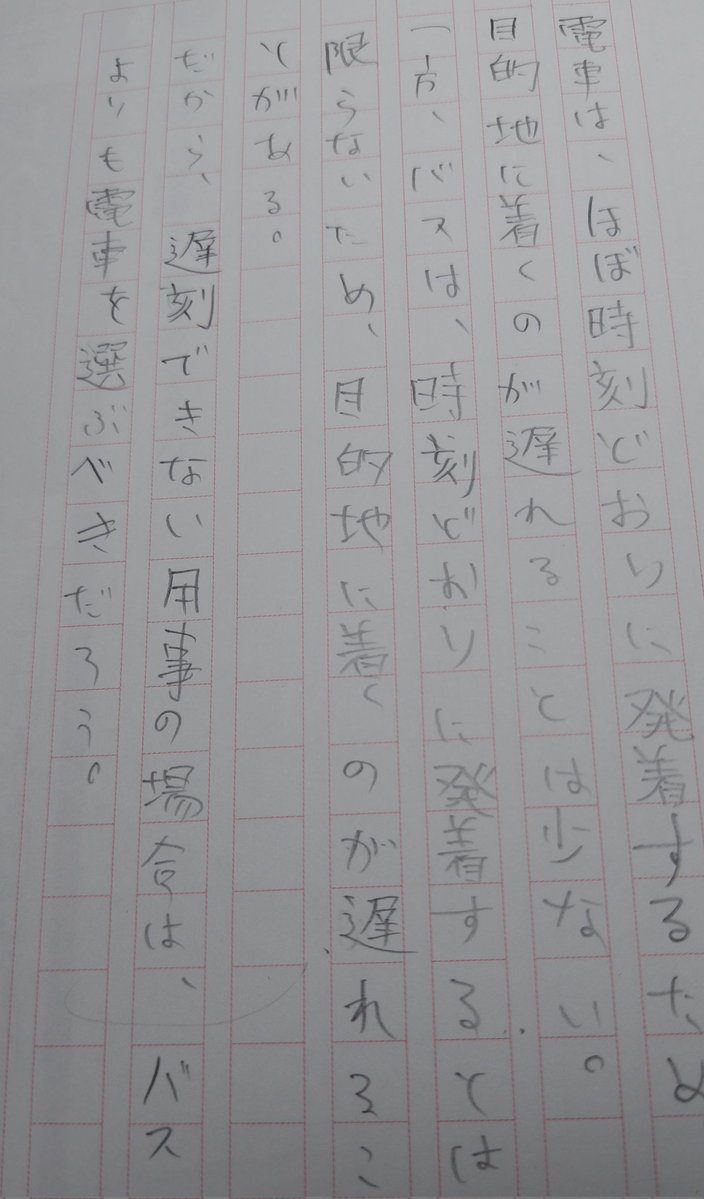 電車は、ほぼ時刻どおりに発着するため
目的地に着くのが遅れることは少ない。
一方、バスは、時刻どおりに発着するとは
限らないため、目的地に着くのが遅れるこ
とがある。
だから、遅刻できない用事の場合は、バス
よりも電車を選ぶべきだろう。